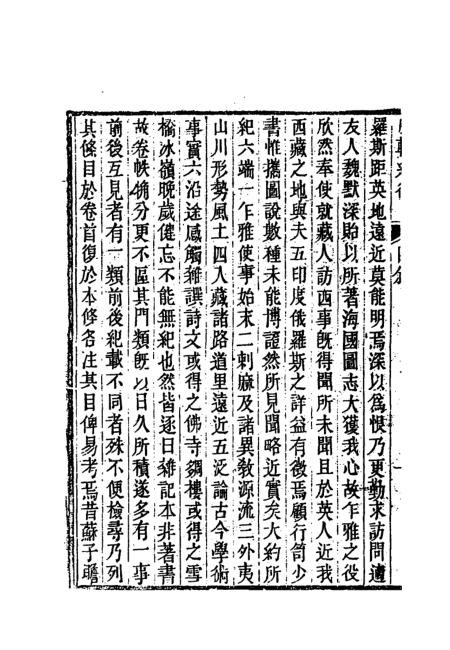 羅斯距英地遠近莫能明焉深以爲恨乃更勤求訪問適
友人魏默深貽以所著海國圖志大獲我心故乍雅之役
欣然奉使就藏人訪西事旣得聞所未聞且於英人近我
西藏之地與夫五印度俄羅斯之詳益有徵焉顧行笥少
書惟攜圖說數種未能博證然所見聞略近實矣大約所
紀六端一乍雅使事始末二刺麻及諸異敎源流三外夷
山川形勢風土四入藏諸路道里遠近五泛論古今學術
事實六沿途感觸雜譔詩文或得之佛寺碉樓或得之雪
橋冰嶺晚歲健忘不能無紀也然皆逐日雜記本非著書
故卷帙份分更不區其門類旣以日久所積遂多有一事
前後互見者有一類前後紀載不同者殊不便檢尋乃列
其條目於卷首復於本條各注其目俾易考焉昔蘇子瞻